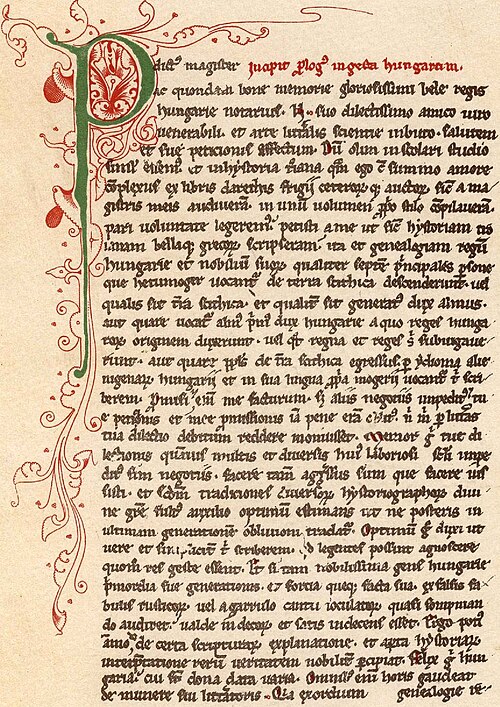 Pdict᷒ magister Incipit ꝓlog᷒ in gesta hungarum.
ac quondam bone memorie gloriosissimi bele regis
hungarie notarius. N. suo dilectissimo amico uiro
uenerabili. et arte litt̃alis scientie inbuto. salutem
et sue peticionis effectum. Dũ olim in scolari studio
simul essem᷒. et in hystoria t̃iana qãm ego cũ summo amore
cõplexus ex libris daretis frigii ceterorꝫ auctorꝫ sic̃ a ma
gistris meis audiueram. in unũ uolumen ꝓprio stilo cõpilauerã.
pari uoluntate legerem᷒. petisti a me ut sic̃ hystoriam tro
ianam bellaqꝫ grecorꝫ scripseram. ita et genealogiam regũ
hungarie et nobiliũ suorꝫ. qualiter septẽ p̃ncipales ꝑsone
que hetumoger uocant᷒ de terra scithica descenderunt. uel
qualis sit t̃ra scithica. et qualit̃ sit generat᷒ dux almus.
aut quare uocat᷒ almꝰ p̃mꝰ dux hungarie a quo reges hunga
rorꝫ originem duxerunt. uel qt̃ regna et reges s̃ subiugaue
runt. aut quare ppls̃ de t̃ra scithica egressus ꝑ ydioma alie
nigenarꝫ hungarii et in sua lingua ꝓp̃a mogerii uocant᷒ t̃ scri
berem. Promisi eñi me facturum. s̃ aliis negotiis impeditꝰ tu
e peticionis et mee ꝓmissionis iã pene erã oblitꝰ. n̄ m̃ ꝑ litt̃as
tua dilectio debitum reddere monuisset. Memor g̃ tue di
lectionis quãuis multis et diuersis huiꝰ laboriosi sc̃li impe
ditꝰ sim negotiis. facere tam̃ aggressus sum que facere ius
sisti. et scd̃m traditiones diuersorꝫ hystoriographorꝫ diui
ne gr̃e fultꝰ auxilio optimum estimans ut ne posteris in
ultimam generationẽ obliuioni tradat᷒. Optimum g̃ duxi ut
uere et simplicit̃ t̃ scriberem. legentes possint agnoscere
quom̃ res geste essent. Et si tam nobilissima gens hungarie
p̃mordia sue generationis. et fortia queqꝫ facta sua. ex falsis fa
bulis rusticorꝫ. uel a garrulo cantu ioculatorꝫ quasi sompnian
do audiret. ualde indecorꝫ et satis indecens esset. Ergo potiꝰ
ãmo de certa scripturarꝫ explanatione. et aꝑta hystoriarꝫ
interp̃tatione rerũ ueritatem nobilit̃ ꝑcipiat. Felix g̃ hun
garia. cui st̃ dona data uaria. Omnibꝰ eñi horis gaudeat
de munere sui litt̃atoris. Q̃a exordium genealogie re-